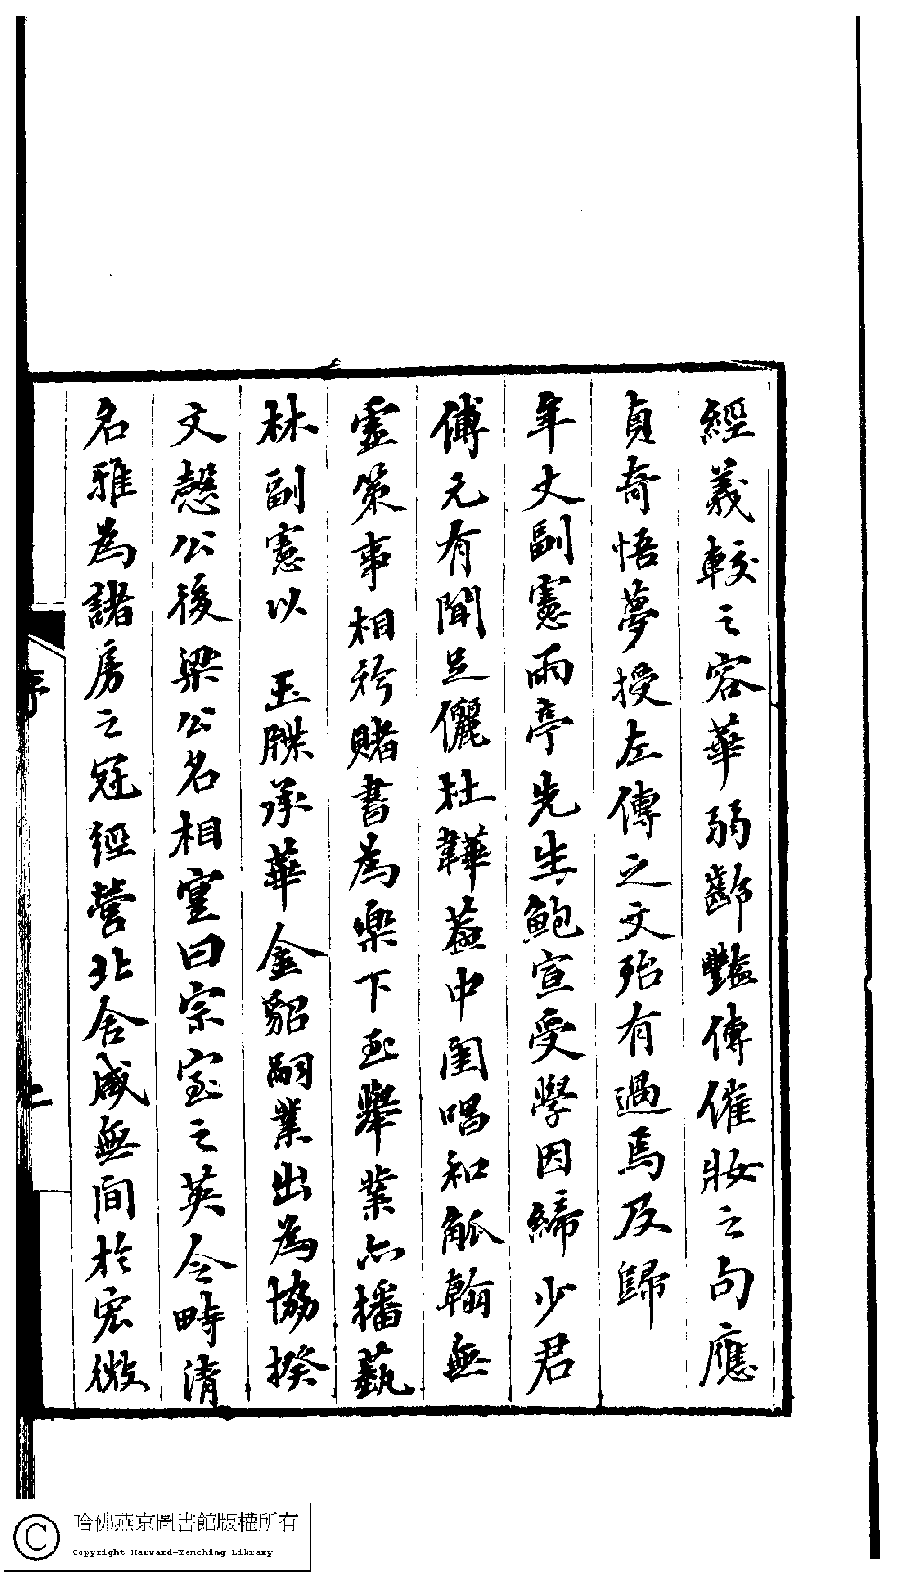 經義較之容華弱齡豔傳催妝之句應
貞奇悟夢授左傳之文殆有過焉及歸
年丈副憲雨亭先生鮑宣受學因締少君
傅元有聞足儷杜韡葢中閨唱和觚翰無
虛策事相矜賭書為樂下至舉業亦播藝
林副憲以　玉牒承華金貂嗣業出為協揆
文慤公後梁公名相寔曰宗室之英令時清
名雅為諸房之冠經營北舍咸無間於宏微
序
七
哈佛燕京圖書館版權所有
Copyright Harvard-Yenching Library